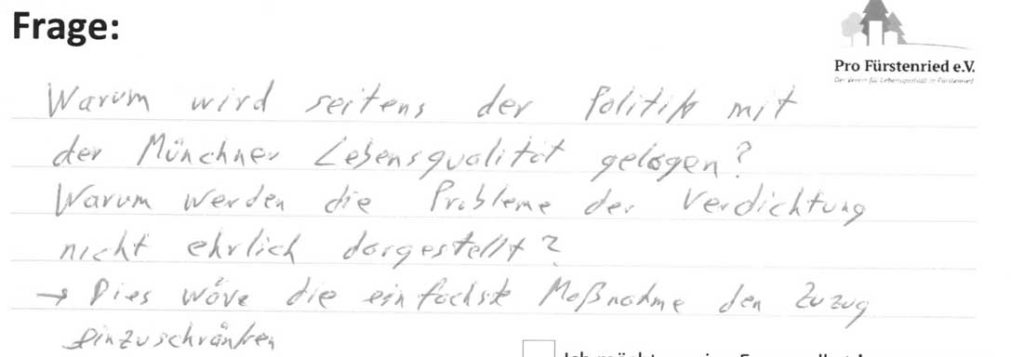 Frage:
Pro Fürstenried e.V.
Der Verein für Lebensqualität in Fürstenried
Warum wird seitens der Politik mit
der Münchner Lebensqualität gelogen?
Warum werden die Probleme der Verdichtung
nicht ehrlich dargestellt?
→ Dies wäre die einfachste Maßnahme den Zuzug
einzuschränken